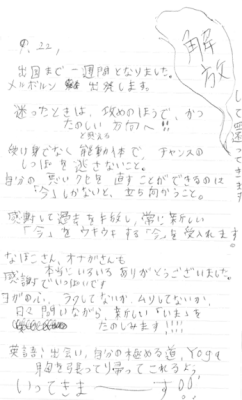 9.22,
出国まで一週間となりました。
メルボルン 出発します。
迷ったときは、攻めのほうで、かつ
たのしい方向へ!!
と覚える
受け身でなく能動体で、チャンスの
しっぽを逃さないこと。
自分の悪いクセを直すことができるのは
「今」しかないと、立ち向かうこと。
感謝して過去を手放し、常に新しい
「今」をウキウキする「今」を受け入れます。
なぽこさん、オナガさんも
本当にいろいろありがとうございました。
感謝でいっぱいです
ヨガのふ、ラクしてないか、ムリしてないか、
日々問いながら、新しい「いま」を
たのしみます!!!!
英語、出会い、自分の極める道、Yoga
胸を張って帰ってこれるよう、
いってきまーーーす!!
解放
して還ってきます